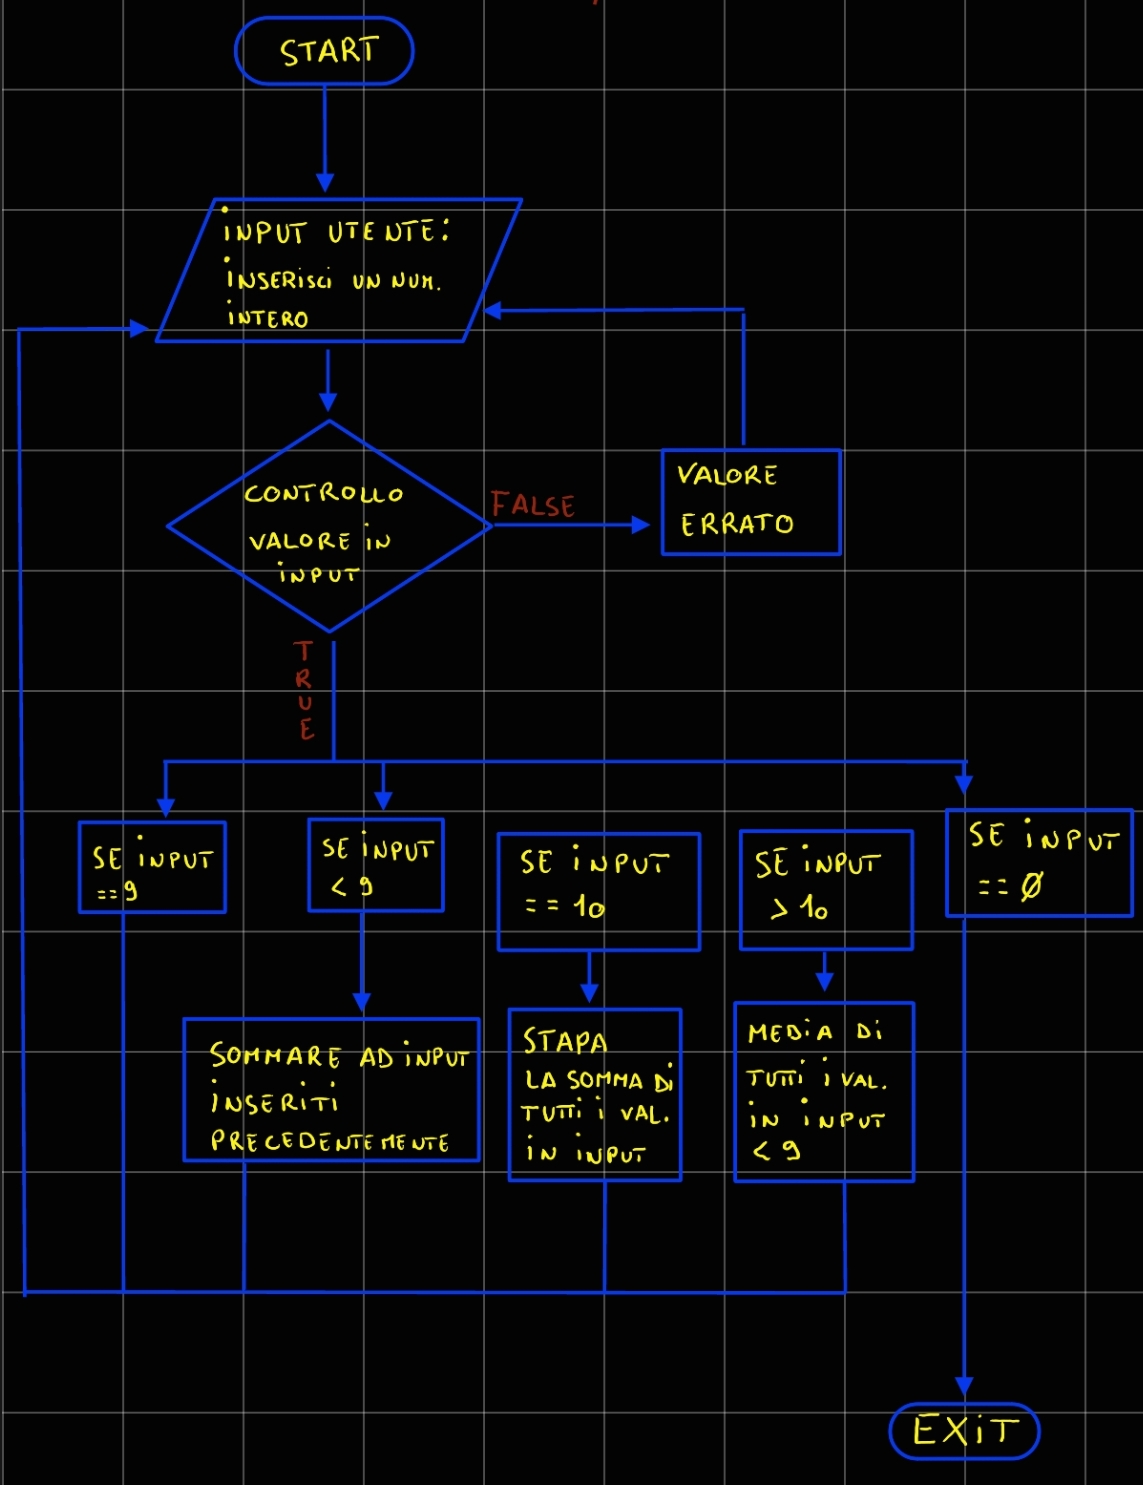 START
INPUT UTENTE:
INSERISCI UN NUM.
INTERO
CONTROLLO
VALORE IN
INPUT
FALSE
VALORE
ERRATO
TRUE
SE INPUT
==9
SE INPUT
< 9
SE INPUT
== 10
SE INPUT
> 10
SE INPUT
== Ø
SOMMARE AD INPUT
INSERITI
PRECEDENTEMENTE
STAPA
LA SOMMA DI
TUTTI I VAL.
IN INPUT
MEDIA DI
TUTTI I VAL.
IN INPUT
< 9
EXIT